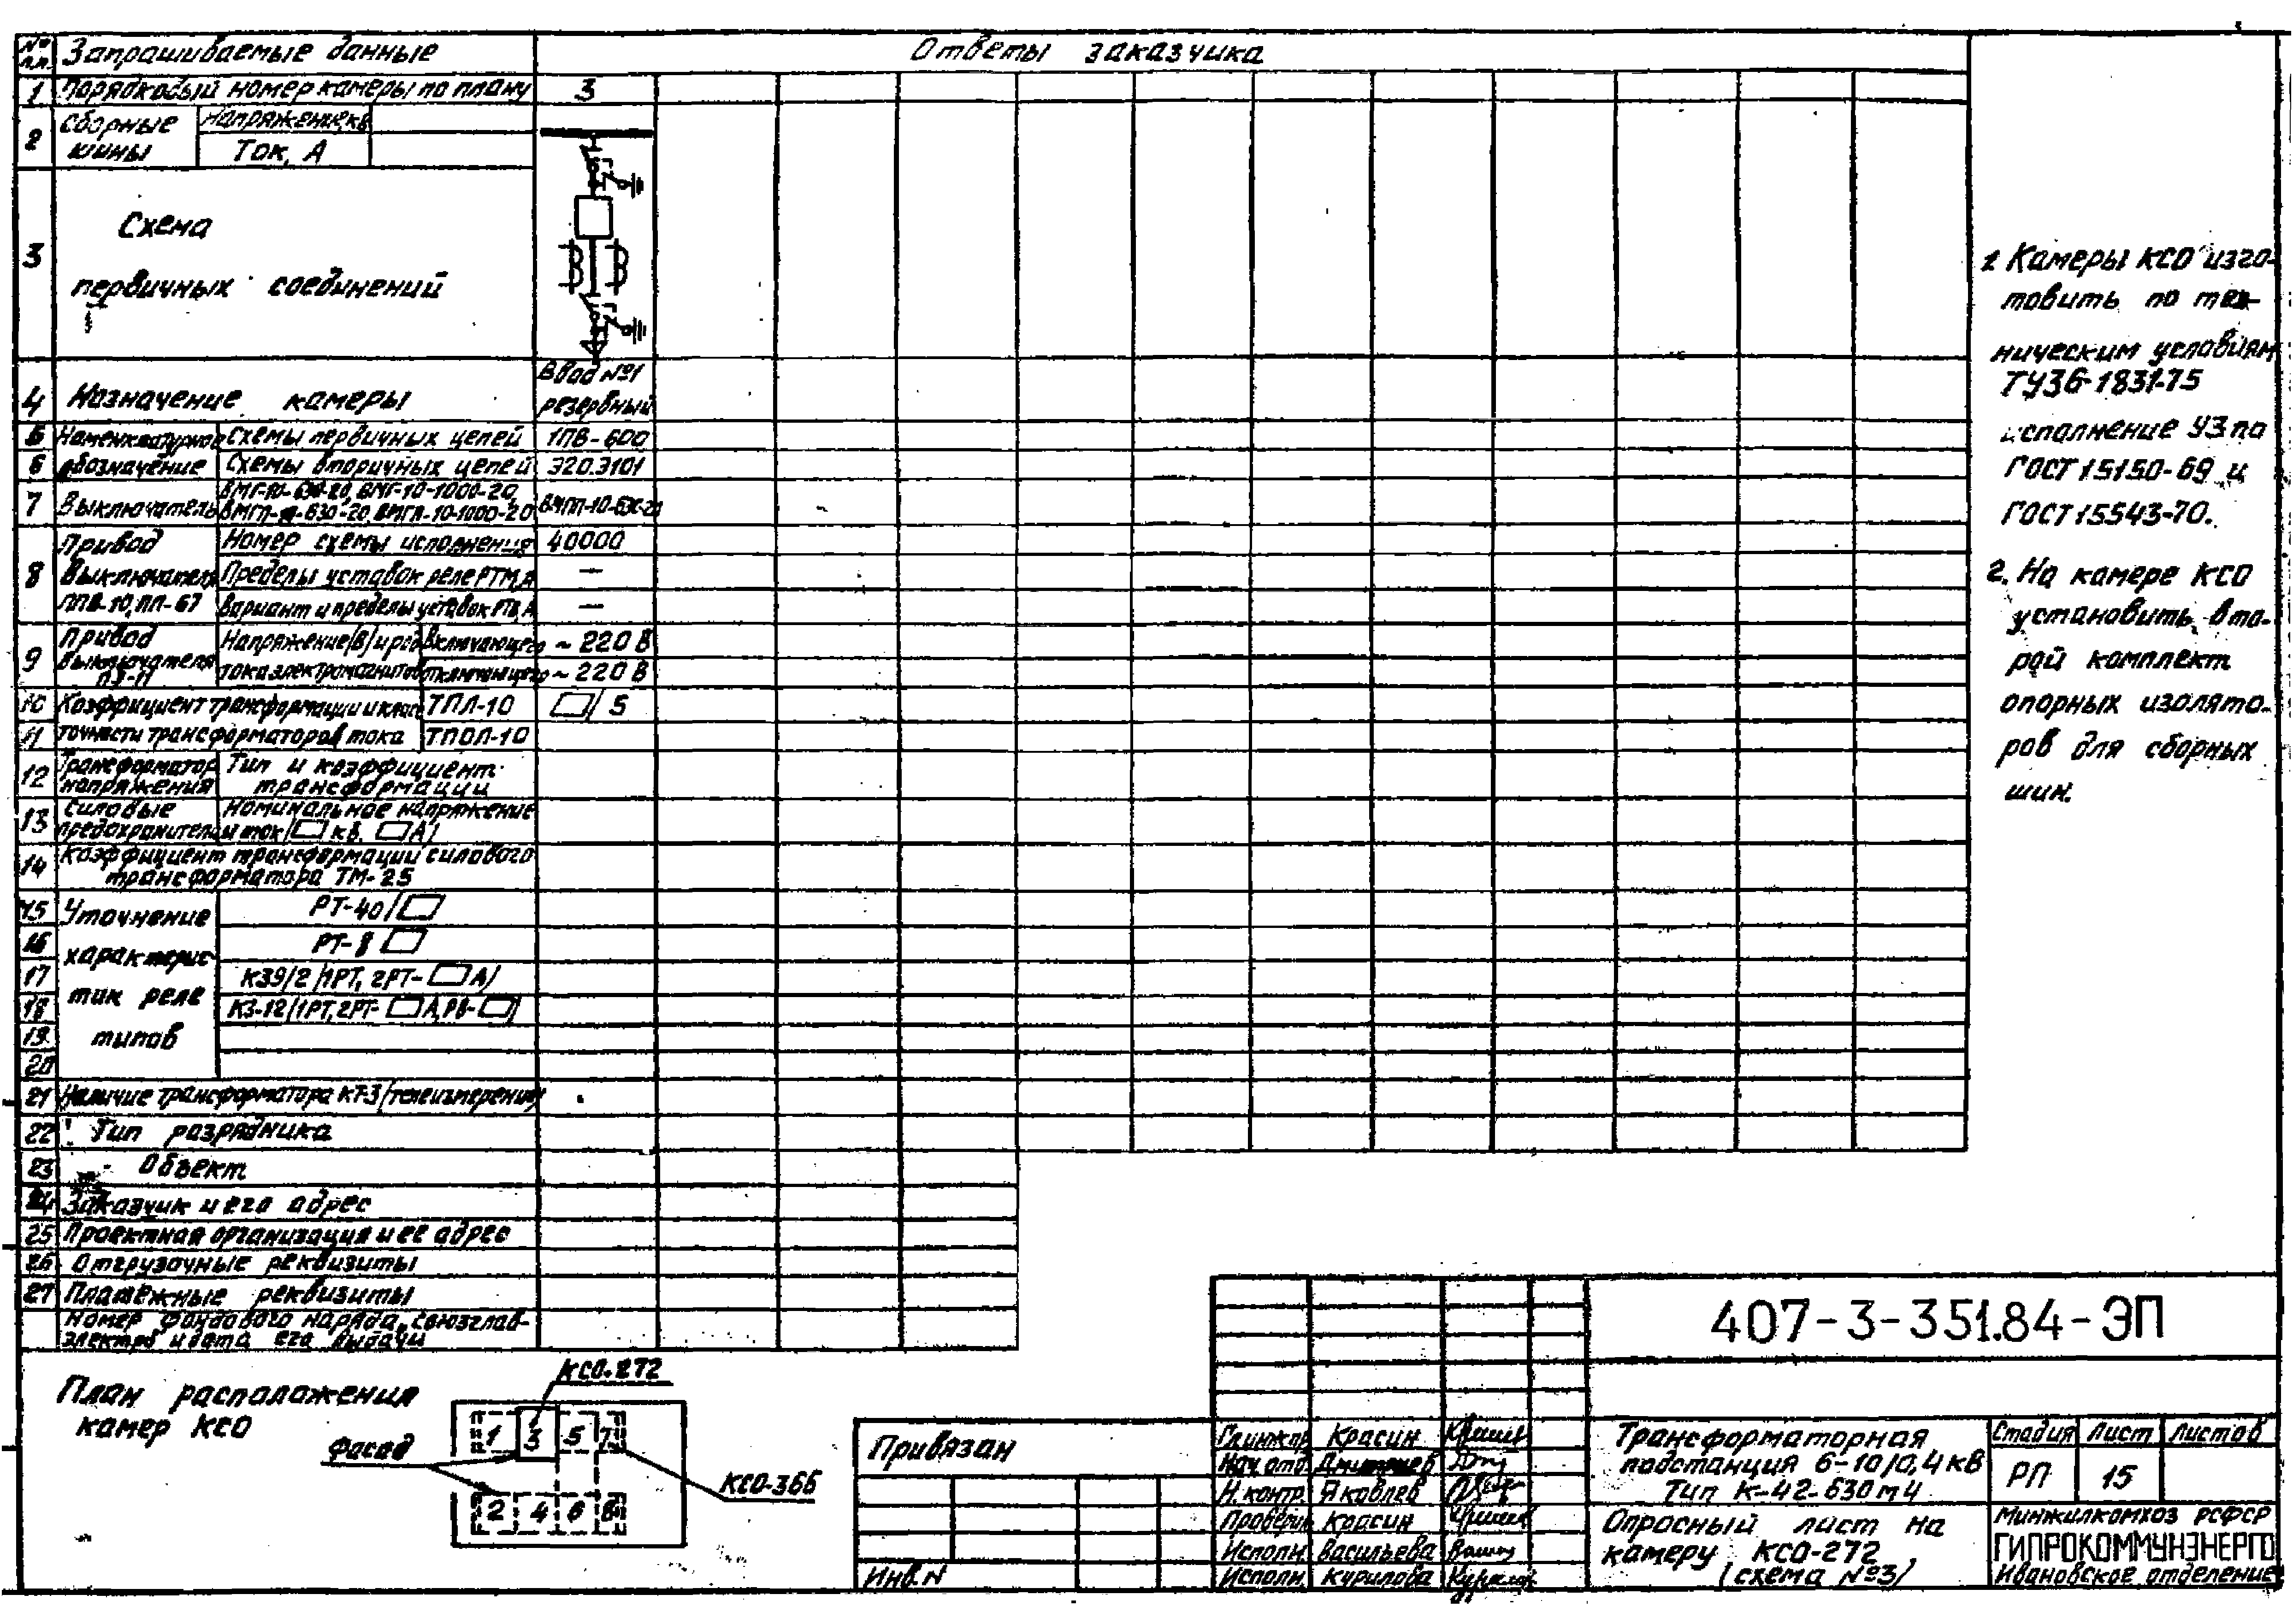 № п.п. Запрашиваемые данные Ответы заказчика
1 Порядковый номер камеры по плану 3
2 Сборные шины Напряжение, кв
Ток, А
3 Схема
первичных соединений
4 Назначение камеры Ввод №1 резервный
5 Номенклатурное Схемы первичных цепей 1ПВ-600
6 обозначение Схемы вторичных цепей Э20.3101
7 Выключатель ВМГ-10-630-20, ВМГ-10-1000-20,
ВМГП-10-630-20, ВМГП-10-1000-20
8 Привод Номер схемы исполнения 40000
Выключателя Пределы уставок реле РТМ, А —
ППВ-10, ПП-67 Вариант и пределы уставок РТВ, А —
9 Привод Напряжение (В) и род Включающего ~ 220 В
Выключателя ПЭ-11 тока электромагнитов отключающего ~ 220 В
10 Коэффициент трансформации и класс ТПЛ-10 / 5
11 точности трансформаторов тока ТПОЛ-10
12 Трансформатор Тип и коэффициент
напряжения трансформации
13 Силовые Номинальное напряжение
предохранители и ток ( кв, А)
14 Коэффициент трансформации силового
трансформатора ТМ-25
15 Уточнение РТ-40/
16 характерис- РТ-8
17 К39/2 (1РТ, 2РТ- А)
18 тик реле КЗ-12 (1РТ, 2РТ- А, РВ- )
19 типов
20
21 Наличие трансформатора КТ-3 (телеизмерения)
22 Тип разрядника
23 Объект
24 Заказчик и его адрес
25 Проектная организация и ее адрес
26 Отгрузочные реквизиты
27 Платежные реквизиты
Номер фондового наряда, союзглав-
электро и дата его выдачи
1 Камеры КСО изго-
товить по тех-
ническим условиям
ТУ36-1831-75
исполнение У3 по
ГОСТ 15150-69 и
ГОСТ 15543-70.
2. На камере КСО
установить вто-
рой комплект
опорных изолято-
ров для сборных
шин.
План расположения
камер КСО
КСО-272
Фасад
1 3 5 7
2 4 6 8
КСО-366
Привязан
Инв. N
407-3-351.84-ЭП
Гл.инж.пр Красин
Нач.отд. Дмитриев
Н. контр. Яковлев
Проверил Красин
Исполн. Васильева
Исполн. Курилова
Трансформаторная
подстанция 6-10/0,4 кв
Тип К-42-630 м4
Стадия Лист Листов
РП 15
Опросный лист на
камеру КСО-272
(схема №3)
Минжилкомхоз РСФСР
ГИПРОКОММУНЭНЕРГО
Ивановское отделение